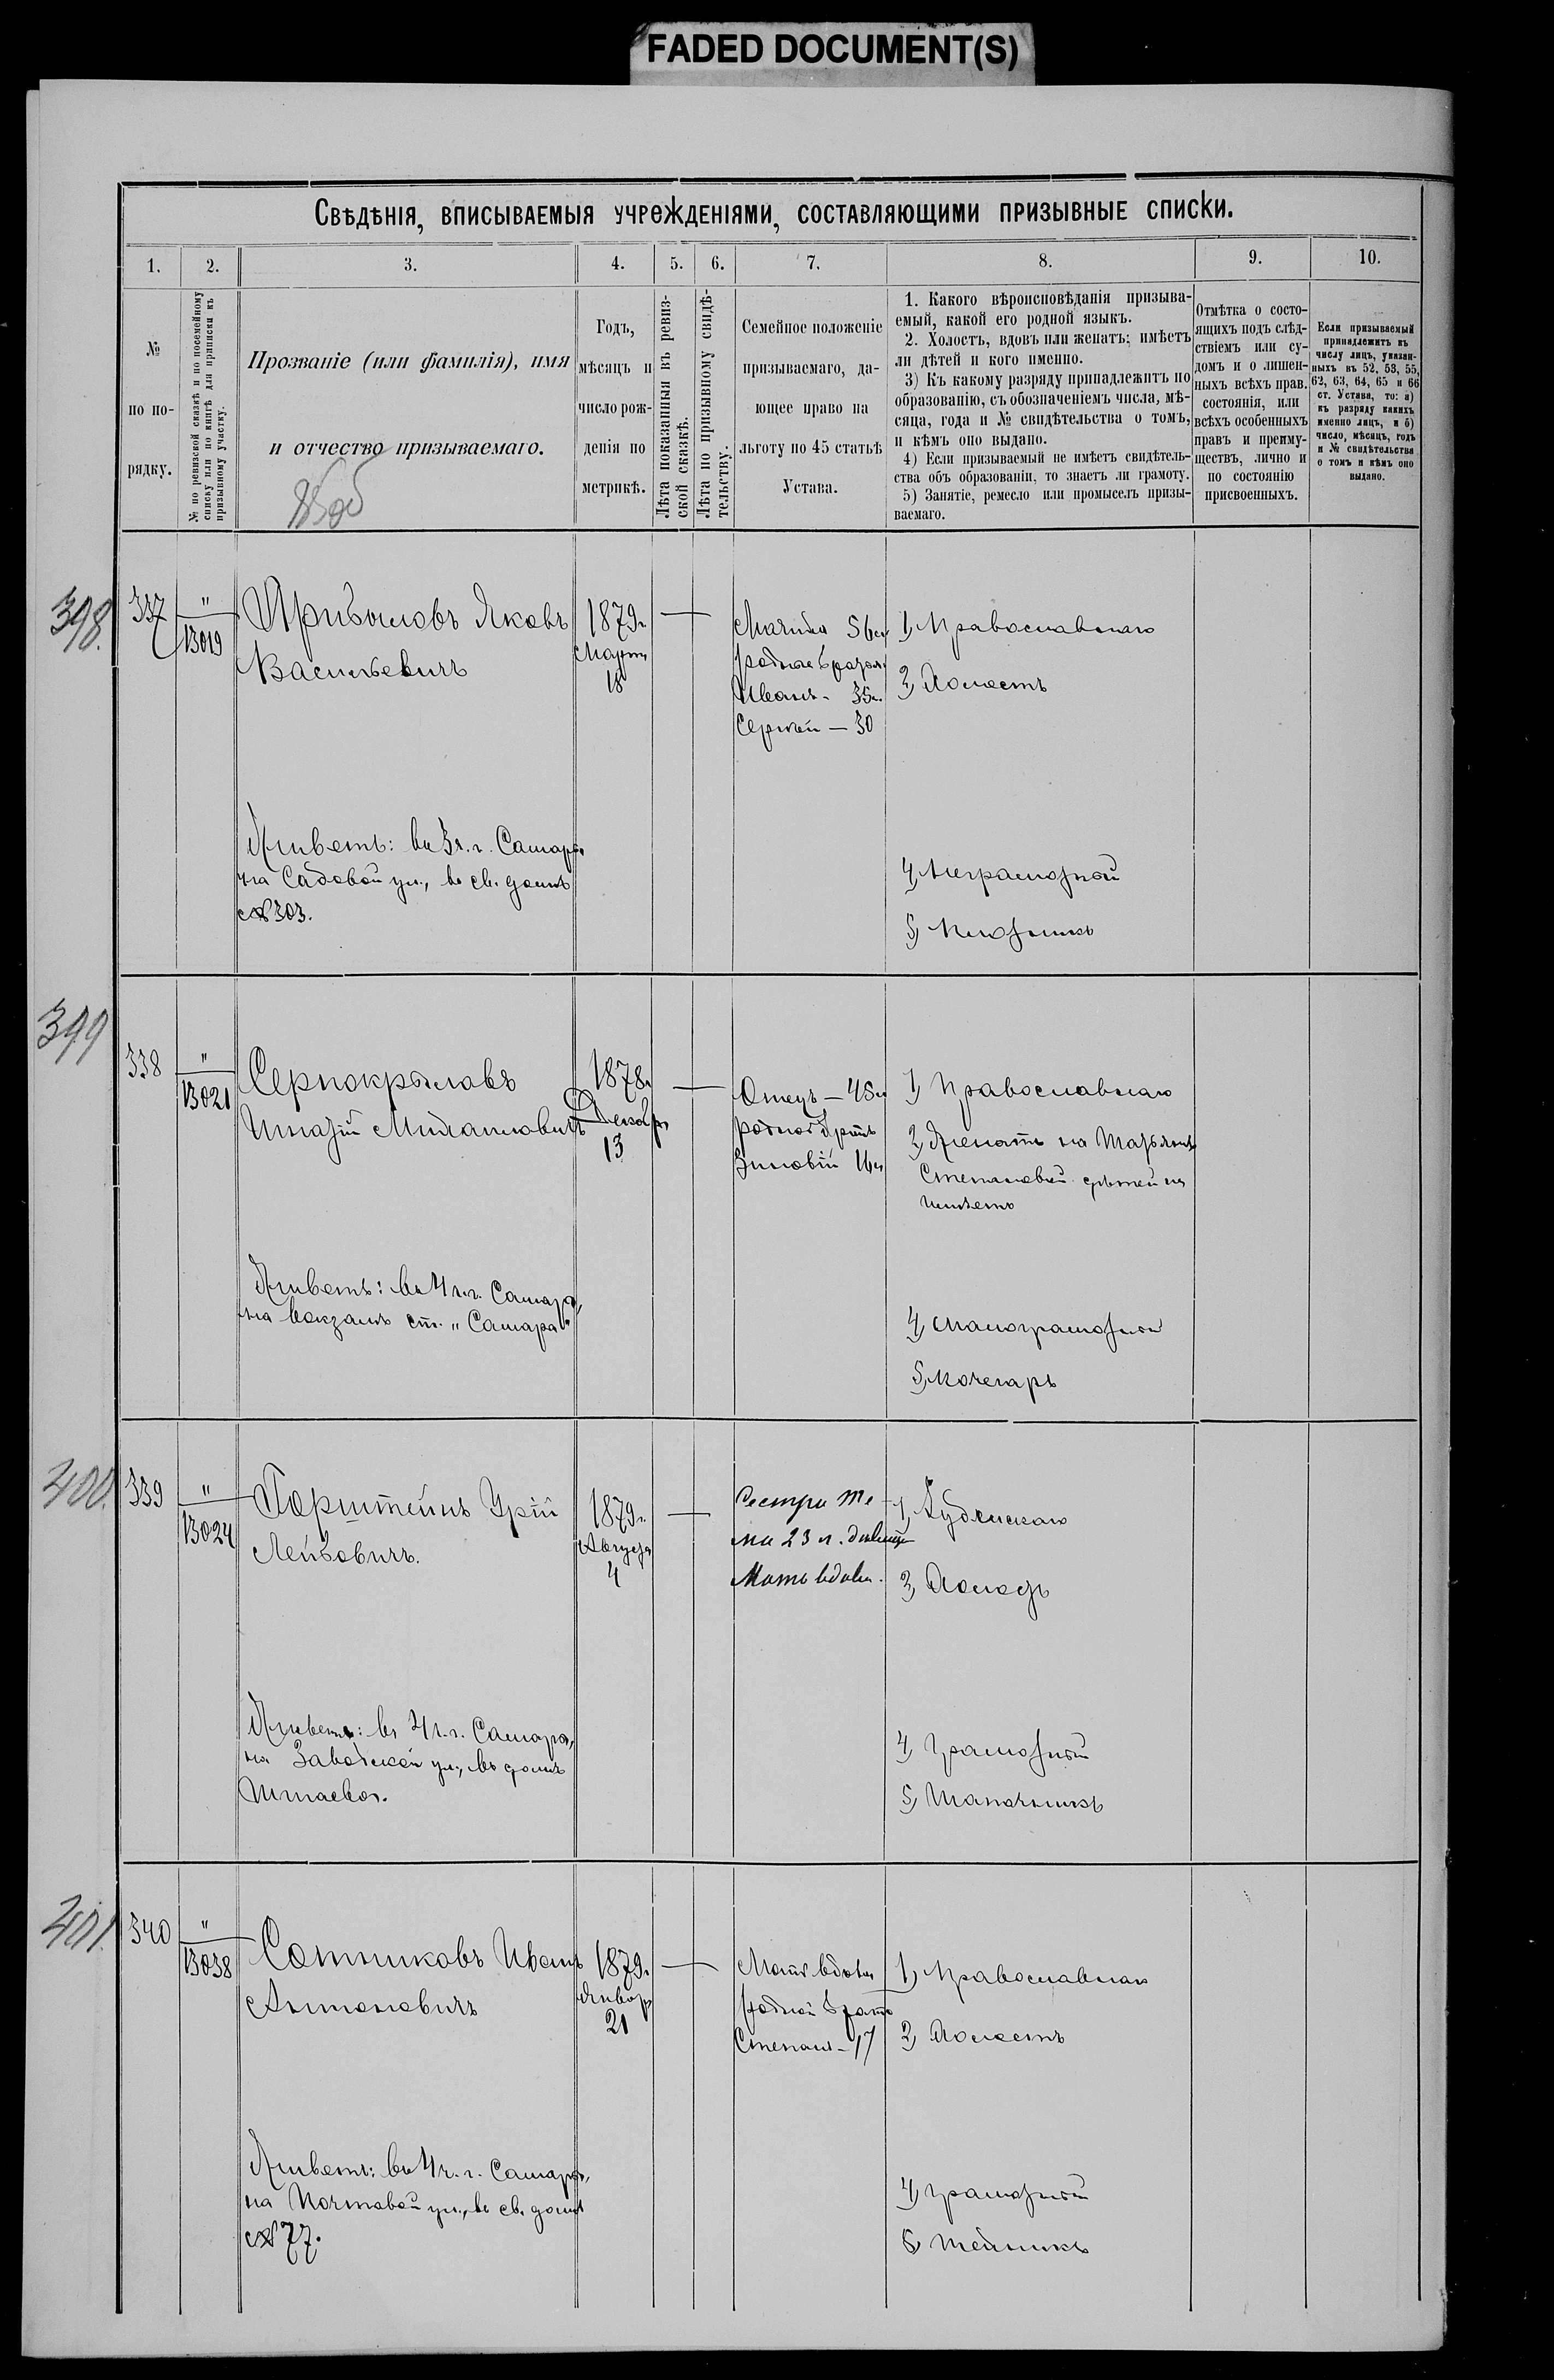 FADED DOCUMENT(S)
Свѣдѣнія, вписываемыя учрежденіями, составляющими призывные списки.
1. 2. 3. 4. 5. 6. 7. 8. 9. 10.
№
по по-
рядку.
№ по ревизской сказкѣ и по посемейному
списку или по книгѣ для приписки къ
призывному участку.
Прозваніе (или фамилія), имя
и отчество призываемаго.
Годъ,
мѣсяцъ и
число рож-
денія по
метрикѣ.
Лѣта показанныя въ ревиз-
ской сказкѣ.
Лѣта по призывному свидѣ-
тельству.
Семейное положеніе
призываемаго, да-
ющее право на
льготу по 45 статьѣ
Устава.
1. Какого вѣроисповѣданія призыва-
емый, какой его родной языкъ.
2. Холостъ, вдовъ или женатъ; имѣетъ
ли дѣтей и кого именно.
3) Къ какому разряду принадлежитъ по
образованію, съ обозначеніемъ числа, мѣ-
сяца, года и № свидѣтельства о томъ,
и кѣмъ оно выдано.
4) Если призываемый не имѣетъ свидѣтель-
ства объ образованіи, то знаетъ ли грамоту.
5) Занятіе, ремесло или промыселъ призы-
ваемаго.
Отмѣтка о состо-
ящихъ подъ слѣд-
ствіемъ или су-
домъ и о лишен-
ныхъ всѣхъ прав.
состоянія, или
всѣхъ особенныхъ
правъ и преиму-
ществъ, лично и
по состоянію
присвоенныхъ.
Если призываемый
принадлежитъ къ
числу лицъ, указан-
ныхъ въ 52, 53, 55,
62, 63, 64, 65 и 66
ст. Устава, то: а)
къ разряду какихъ
именно лицъ, и б)
число, мѣсяцъ, годъ
и № свидѣтельства
о томъ и кѣмъ оно
выдано.
398.
337
"
13019
Прибыловъ Яковъ
Васильевичъ
1879г.
Март
18
Мачиха 56л
родные братья
Иванъ - 35л.
Сергѣй — 30
1, Православнаго
2, Холостъ
Живетъ: въ 3ч. г. Самары
на Садовой ул., въ св. домѣ
№ 303.
4, Неграмотный
5, Плотникъ
399
338
"
13021
Серпокрыловъ
Игнатій Михайловичъ
1878г.
Декабр
13
Отецъ — 45л
родной братъ
Зиновій 16л
1, Православнаго
2, Женатъ на Марьянѣ
Степановой дѣтей не
имѣетъ
Живетъ: въ 4 ч. г. Самары,
на вокзалѣ ст. „Самара"
4, Малограмотный
5, Кочегаръ
400.
339
"
13024
Горштейнъ Урій
Лейбовичъ.
1879г.
Августа
4
Сестра
23 л. дѣвица
Мать вдова.
1, Іудейскаго
2, Холостъ
Живетъ: въ 4 ч. г. Самары,
на Заводской ул., въ домѣ
4, Грамотный
5, Шапочникъ
401.
340
"
13038
Сотниковъ Иванъ
Антоновичъ
1879г.
Январ
21
Мать вдова
родной братъ
Степанъ - 17
1, Православнаго
2, Холостъ
Живетъ: въ 4ч. г. Самары,
на Почтовой ул., въ св. домѣ
№ 77.
4, Грамотный